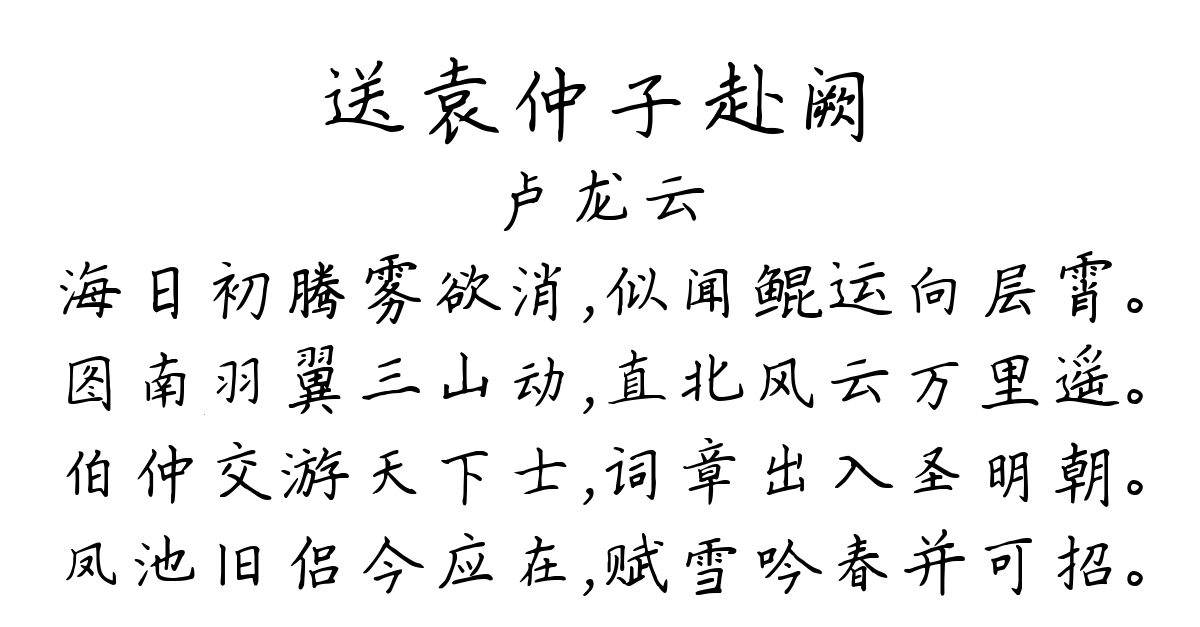 送袁仲子赴阙
卢龙云
海日初腾雾欲消,似闻鲲运向层霄。
图南羽翼三山动,直北风云万里遥。
伯仲交游天下士,词章出入圣明朝。
凤池旧侣今应在,赋雪吟春并可招。